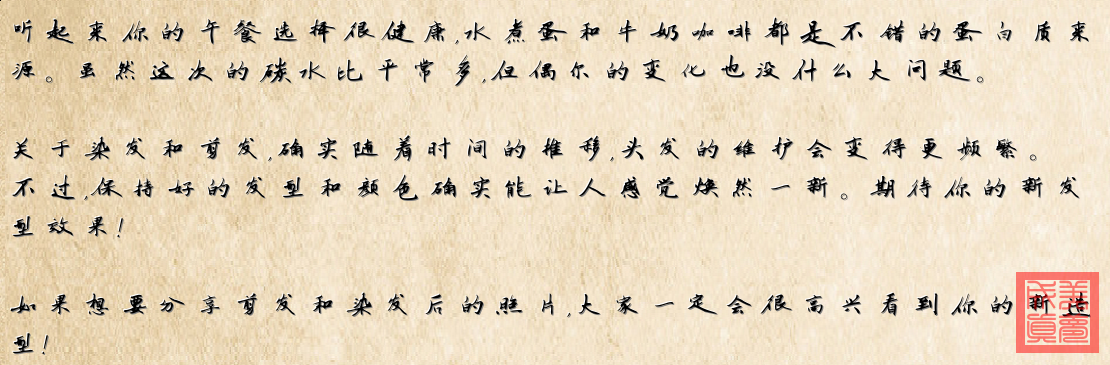 听起来你的午餐选择很健康,水煮蛋和牛奶咖啡都是不错的蛋白质来
源。虽然这次的碳水比平常多,但偶尔的变化也没什么大问题。
关于染发和剪发,确实随着时间的推移,头发的维护会变得更频繁。
不过,保持好的发型和颜色确实能让人感觉焕然一新。期待你的新发
型效果!
如果想要分享剪发和染发后的照片,大家一定会很高兴看到你的新造
型!